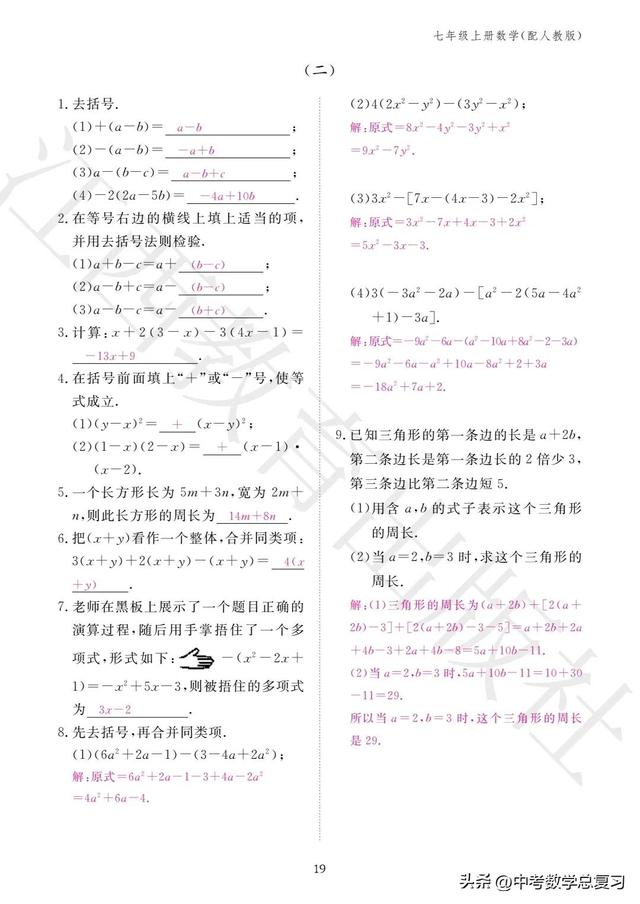 七年级上册数学(配人教版)
(二)
1.去括号.
(1)+(a-b)= a-b ;
(2)-(a-b)= -a+b ;
(3)a-(b-c)= a-b+c ;
(4)-2(2a-5b)= -4a+10b .
2.在等号右边的横线上填上适当的项,
并用去括号法则检验.
(1)a+b-c=a+ (b-c) ;
(2)a-b+c=a- (b-c) ;
(3)a-b-c=a- (b+c) .
3.计算:x+2(3-x)-3(4x-1)=
-13x+9 .
4.在括号前面填上“+”或“-”号,使等
式成立.
(1)(y-x)²= + (x-y)²;
(2)(1-x)(2-x)= + (x-1)·
(x-2).
5.一个长方形长为 5m+3n,宽为 2m+
n,则此长方形的周长为 14m+8n .
6.把(x+y)看作一个整体,合并同类项:
3(x+y)+2(x+y)-(x+y)= 4(x
+y) .
7.老师在黑板上展示了一个题目正确的
演算过程,随后用手掌捂住了一个多
项式,形式如下: -(x²-2x+
1)=-x²+5x-3,则被捂住的多项式
为 3x-2 .
8.先去括号,再合并同类项.
(1)(6a²+2a-1)-(3-4a+2a²);
解:原式=6a²+2a-1-3+4a-2a²
=4a²+6a-4.
(2)4(2x²-y²)-(3y²-x²);
解:原式=8x²-4y²-3y²+x²
=9x²-7y².
(3)3x²-[7x-(4x-3)-2x²];
解:原式=3x²-7x+4x-3+2x²
=5x²-3x-3.
(4)3(-3a²-2a)-[a²-2(5a-4a²
+1)-3a].
解:原式=-9a²-6a-(a²-10a+8a²-2-3a)
=-9a²-6a-a²+10a-8a²+2+3a
=-18a²+7a+2.
9.已知三角形的第一条边的长是 a+2b,
第二条边长是第一条边长的 2 倍少 3,
第三条边比第二条边短 5.
(1)用含 a,b 的式子表示这个三角形
的周长.
(2)当 a=2,b=3 时,求这个三角形的
周长.
解:(1)三角形的周长为(a+2b)+[2(a+
2b)-3]+[2(a+2b)-3-5]=a+2b+2a
+4b-3+2a+4b-8=5a+10b-11.
(2)当 a=2,b=3 时,5a+10b-11=10+30
-11=29.
所以当 a=2,b=3 时,这个三角形的周长
是 29.
江西教育出版社
19
头条 @中考数学总复习